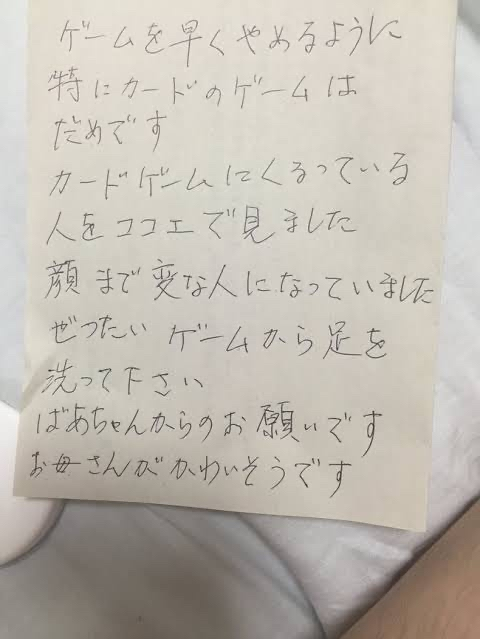 ゲームを早くやめるように
特にカードのゲームは
だめです
カードゲームにくるっている
人をココエで見ました
顔まで変な人になっていました
ぜつたいゲームから足を
洗って下さい
ばあちゃんからのお願いです
お母さんがかわいそうです